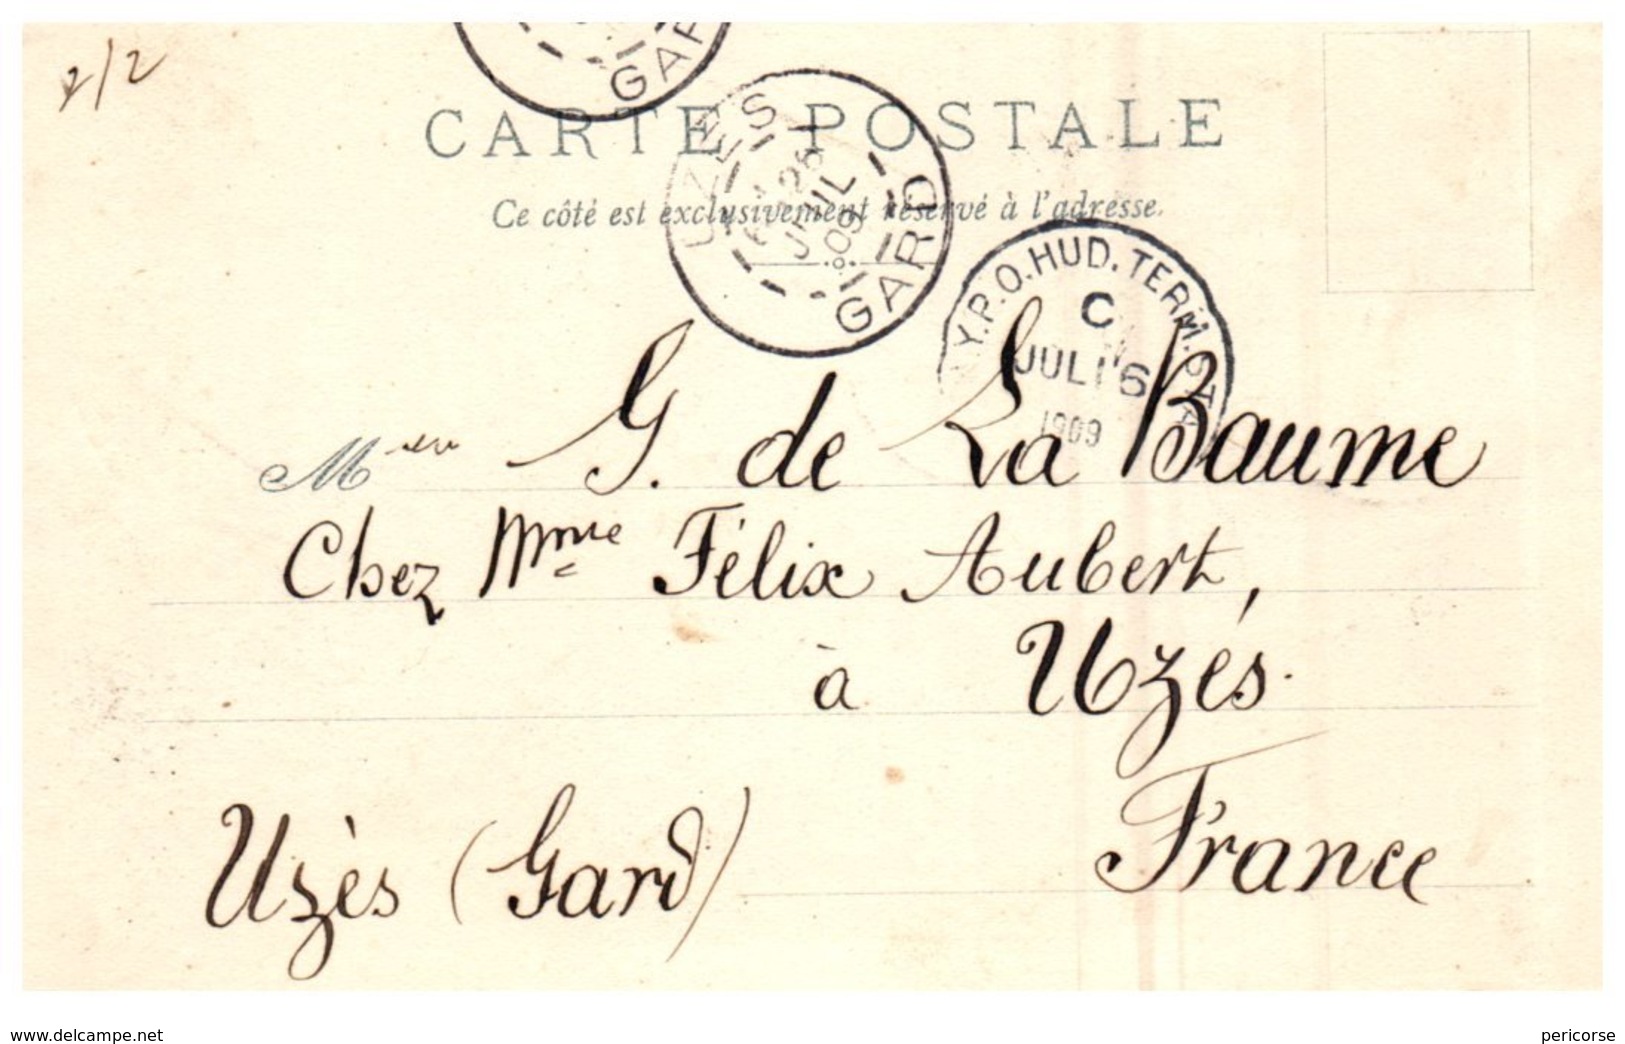 2/2
GAR
CARTE POSTALE
Ce côté est exclusivement réservé à l'adresse.
UZES
26
JUIL
09
GARD
Y.P.O. HUD. TERM. STA
C
JUL 16
1909
M G. de La Baume
Chez Mme Félix Aubert,
à Uzés.
France
Uzès (Gard)
www.delcampe.net
pericorse